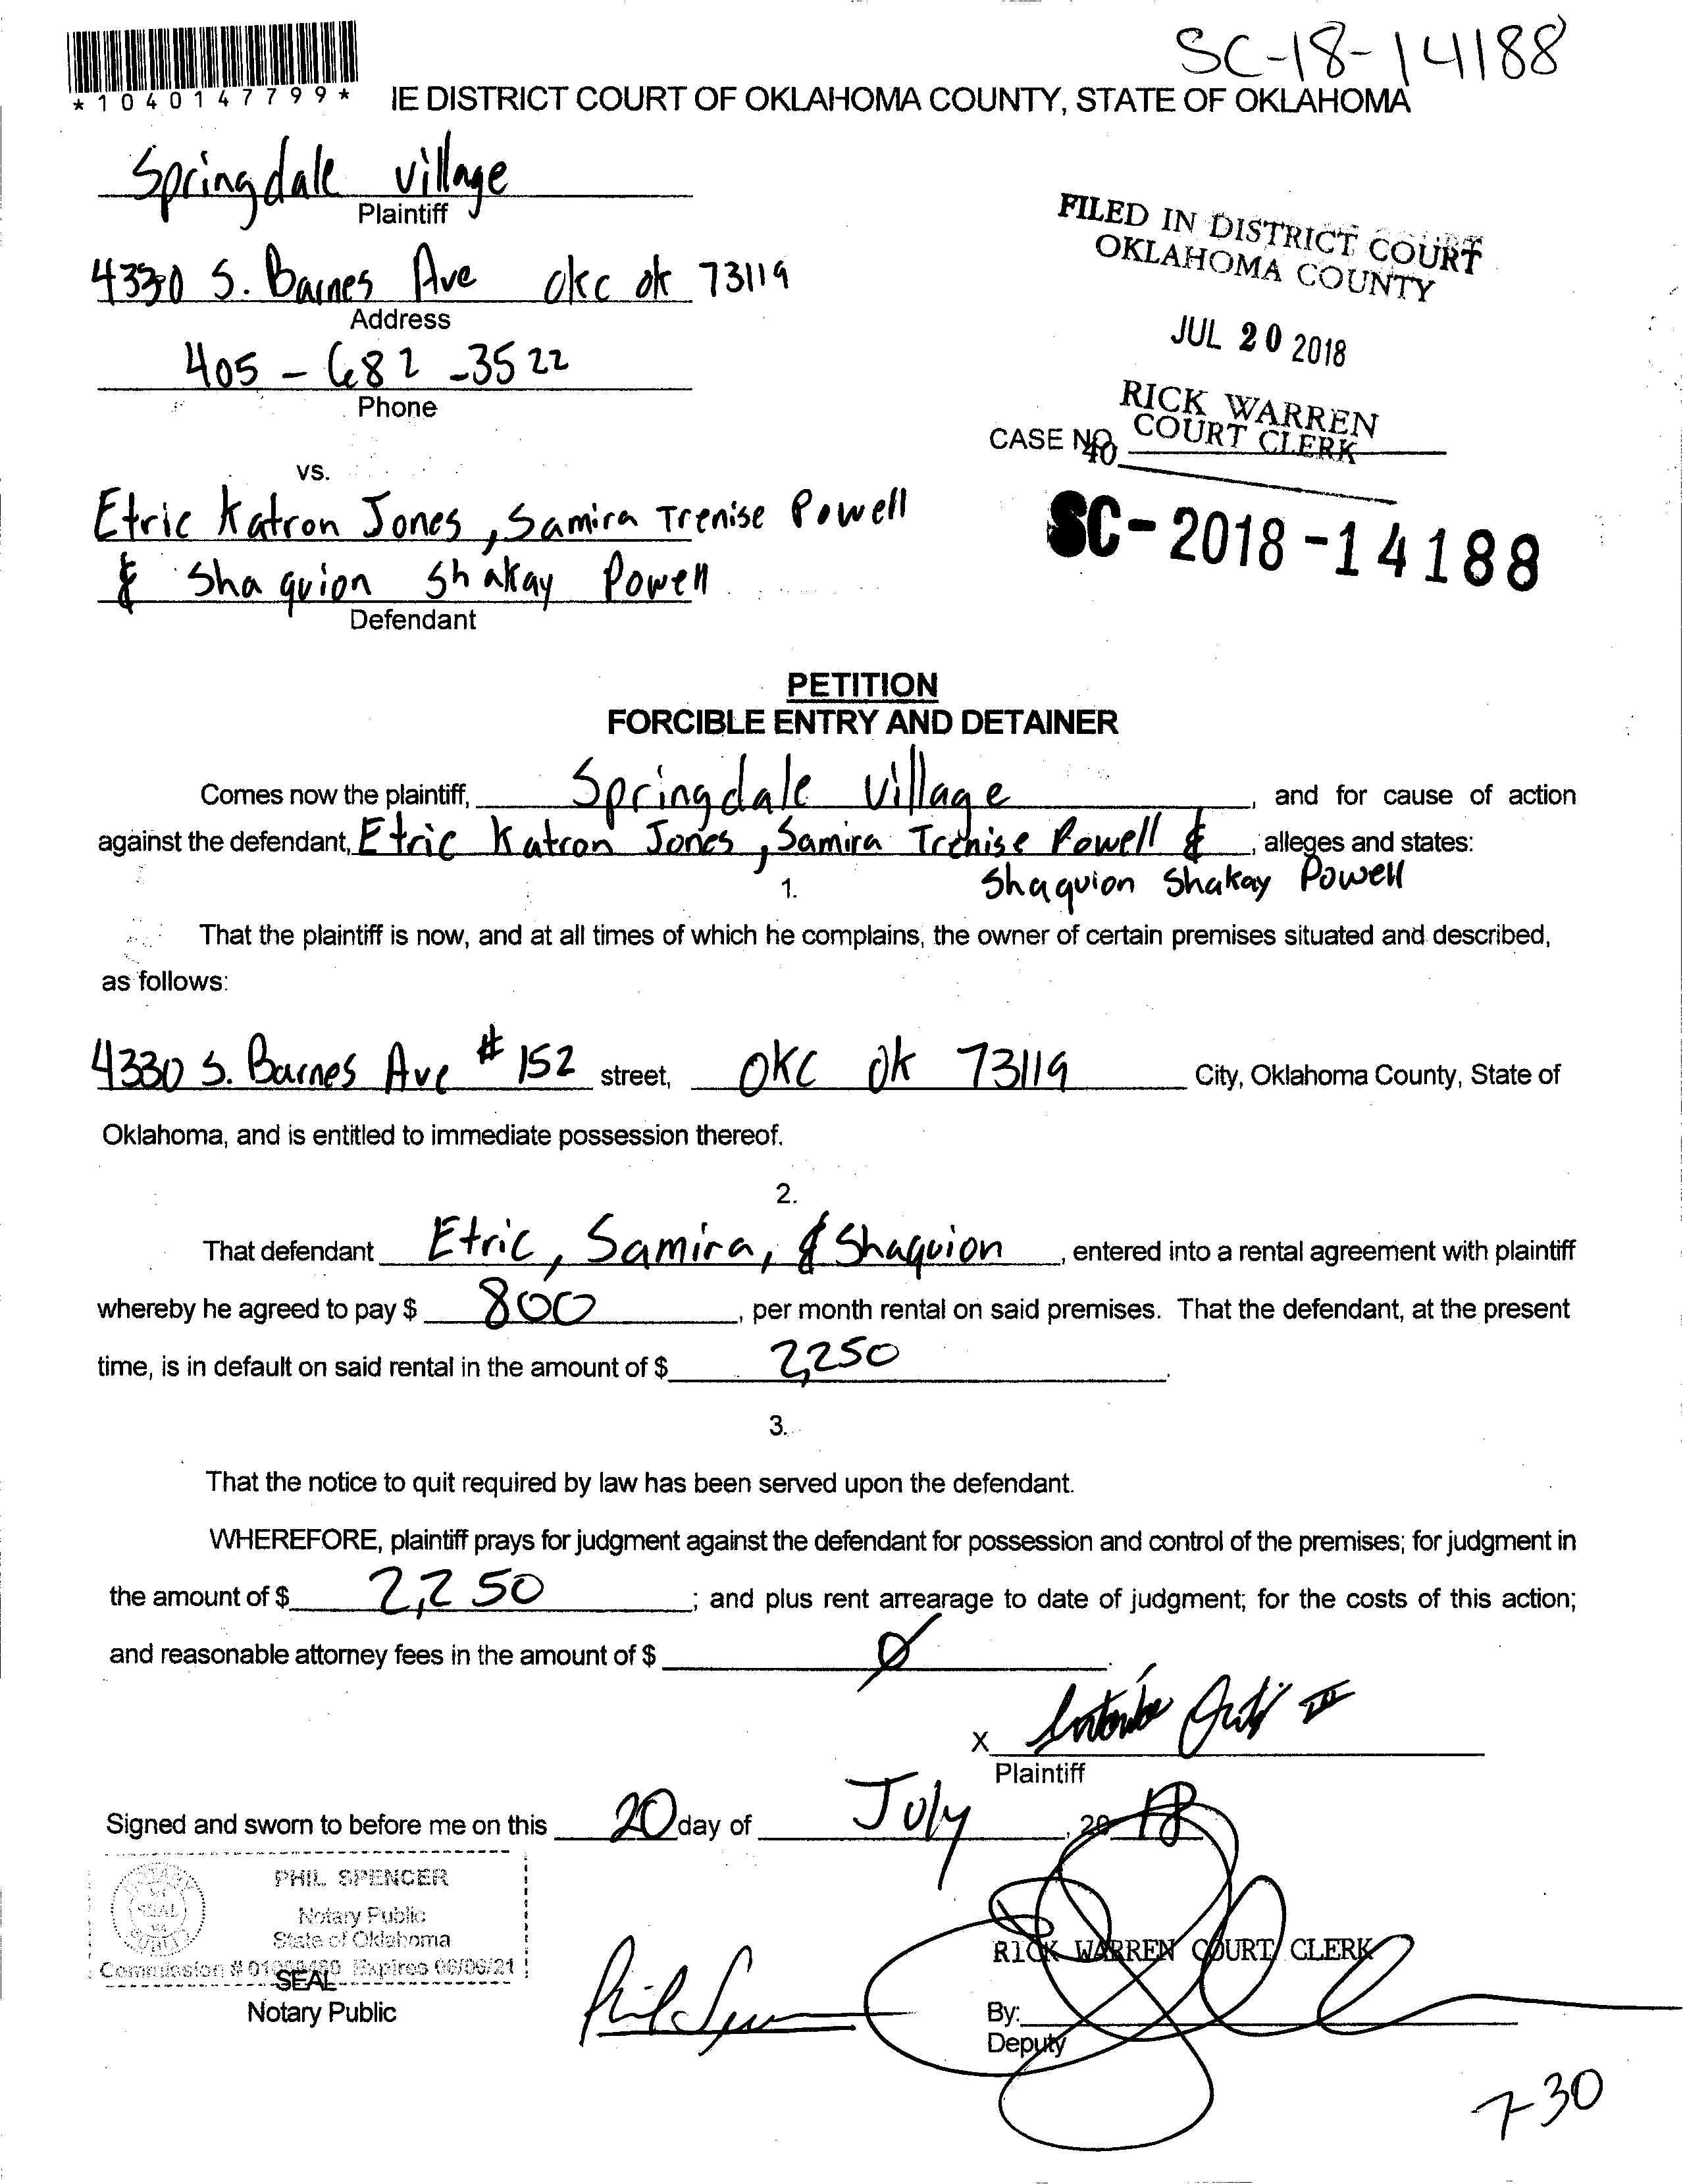 SC-18-14188
*1040147799*
IE DISTRICT COURT OF OKLAHOMA COUNTY, STATE OF OKLAHOMA
Springdale village
Plaintiff
4330 S. Barnes Ave okc ok 73119
Address
405-682-3522
Phone
FILED IN DISTRICT COURT
OKLAHOMA COUNTY
JUL 20 2018
RICK WARREN
COURT CLERK
CASE NO.
40
vs.
Etric Katron Jones, Samira Trenise Powell
& Shaquion Shakay Powell
Defendant
SC-2018-14188
PETITION
FORCIBLE ENTRY AND DETAINER
Comes now the plaintiff, Springdale village, and for cause of action
against the defendant, Etric Katron Jones, Samira Trenise Powell &, alleges and states:
Shaquion Shakay Powell
1.
That the plaintiff is now, and at all times of which he complains, the owner of certain premises situated and described,
as follows:
4330 S. Barnes Ave #152 street, OKC ok 73119 City, Oklahoma County, State of
Oklahoma, and is entitled to immediate possession thereof.
2.
That defendant Etric, Samira, & Shaquion, entered into a rental agreement with plaintiff
whereby he agreed to pay $ 800, per month rental on said premises. That the defendant, at the present
time, is in default on said rental in the amount of $ 2,250.
3.
That the notice to quit required by law has been served upon the defendant.
WHEREFORE, plaintiff prays for judgment against the defendant for possession and control of the premises; for judgment in
the amount of $ 2,250; and plus rent arrearage to date of judgment; for the costs of this action;
and reasonable attorney fees in the amount of $ Ø.
X
Plaintiff
Signed and sworn to before me on this 20 day of July, 2018
PHIL SPENCER
Notary Public
State of Oklahoma
Commission # Expires 06/06/21
SEAL
Notary Public
RICK WARREN COURT CLERK
By:
Deputy
7-30